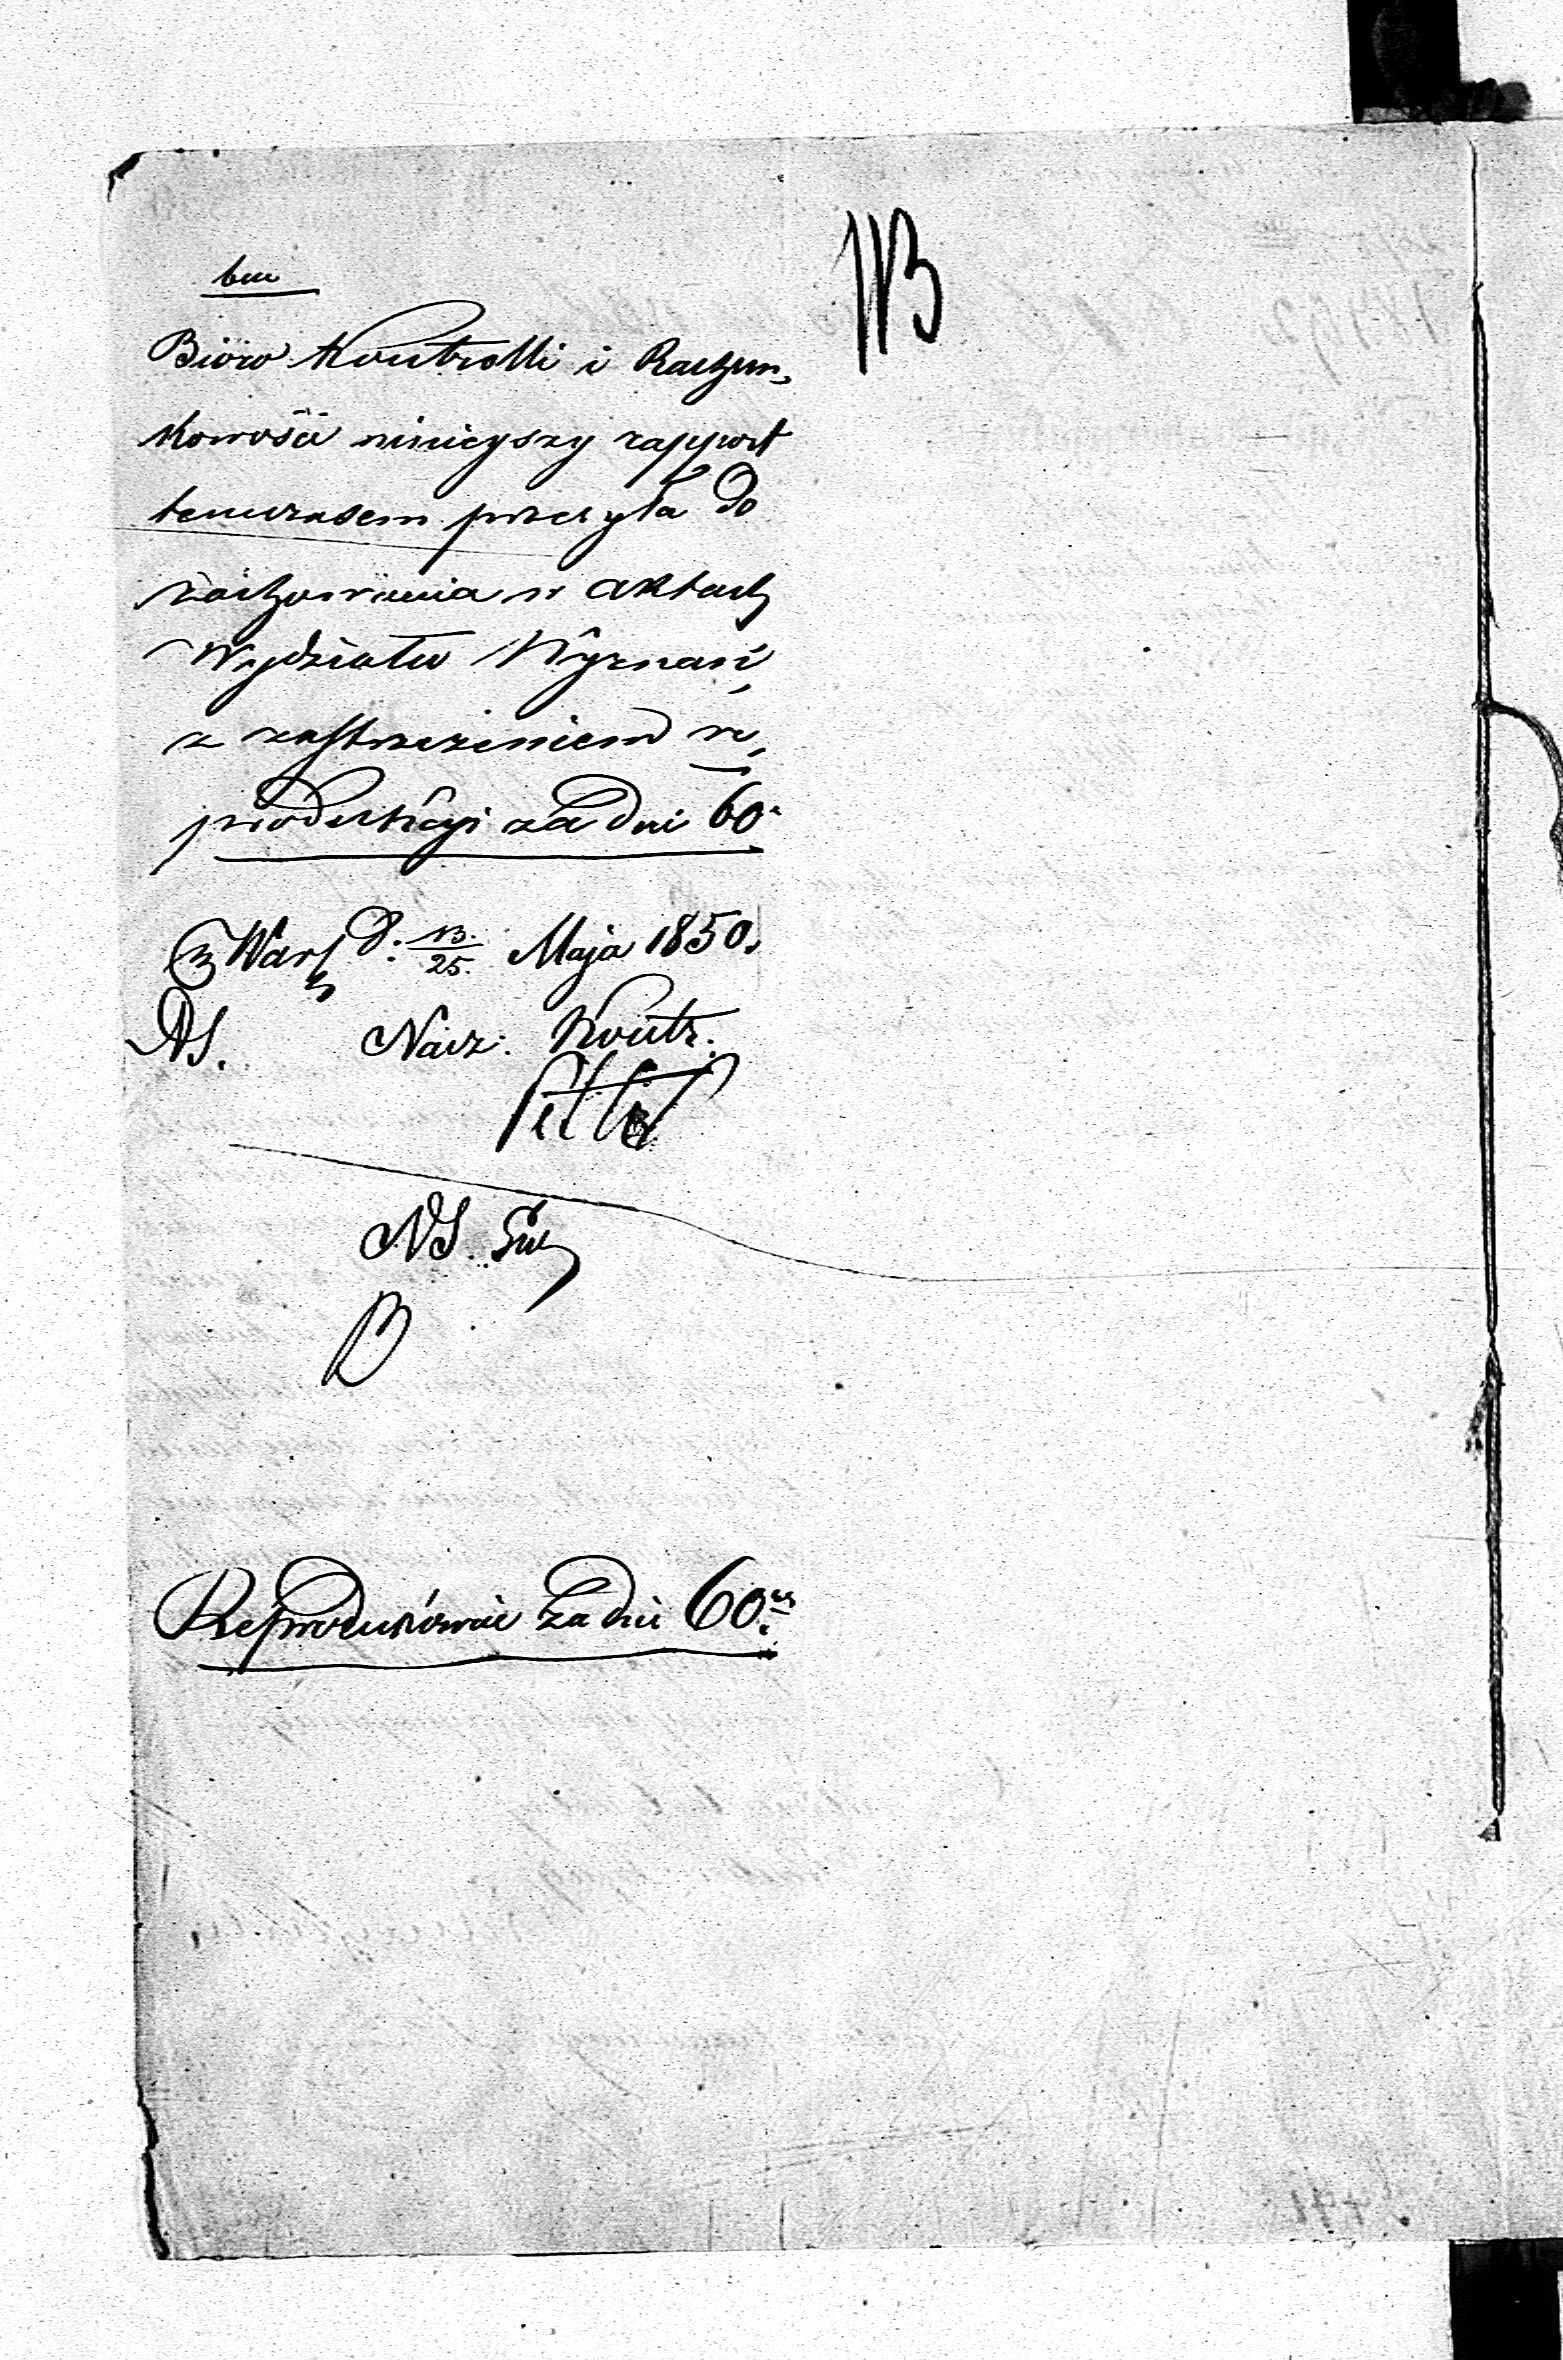 113
Biöro Kontrolli i Rachun,
kowości ninieyszy rapport
tymczasem przesyła do
zachowania w aktach
Wydziału Wyznań,
z zastrzeżeniem re,
produkcyi za dni 60.
w Warsz d. 13/25. Maja 1850.
NS. Nacz: Kontr.
NS.
Reprodukować za dni 60.